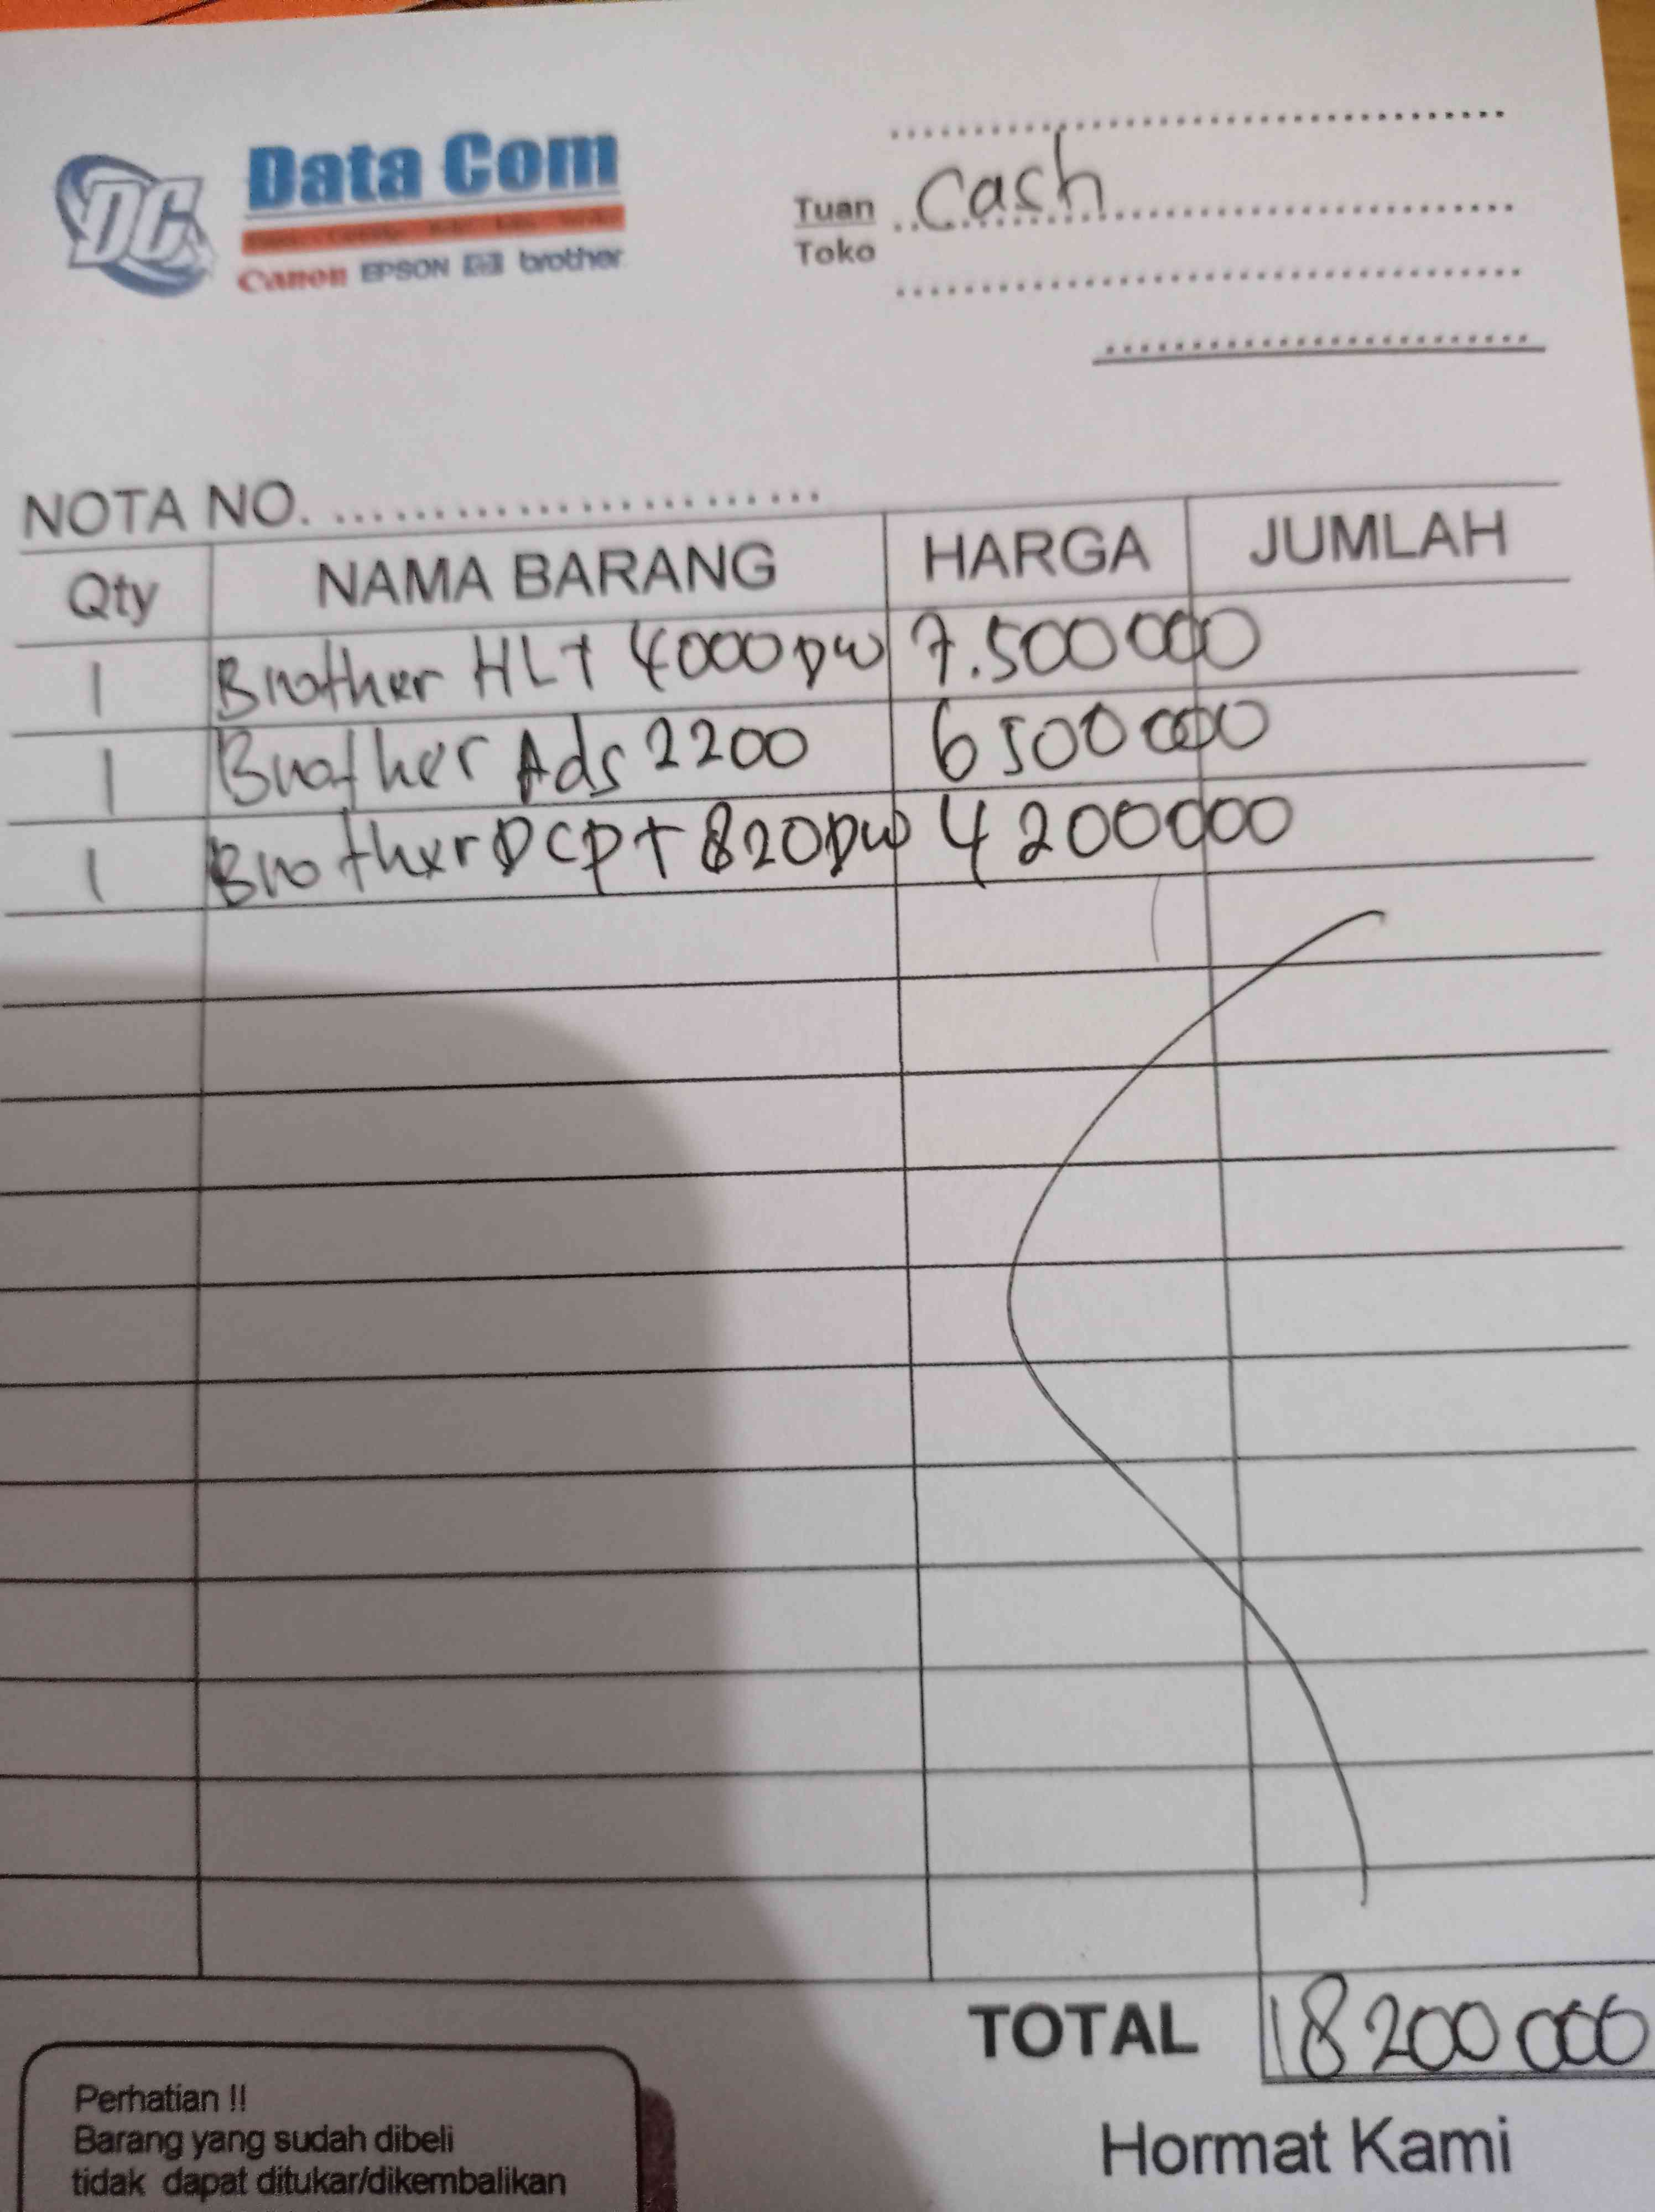 DC
Data Com
Canon EPSON hp brother
Tuan Cash
Toko
NOTA NO.
Qty NAMA BARANG HARGA JUMLAH
1 Brother HLT 4000DW 7.500000
1 Brother Ads 2200 6500000
1 Brother DCPT 820DW 4200000
TOTAL 18200000
Perhatian !!
Barang yang sudah dibeli
tidak dapat ditukar/dikembalikan
Hormat Kami